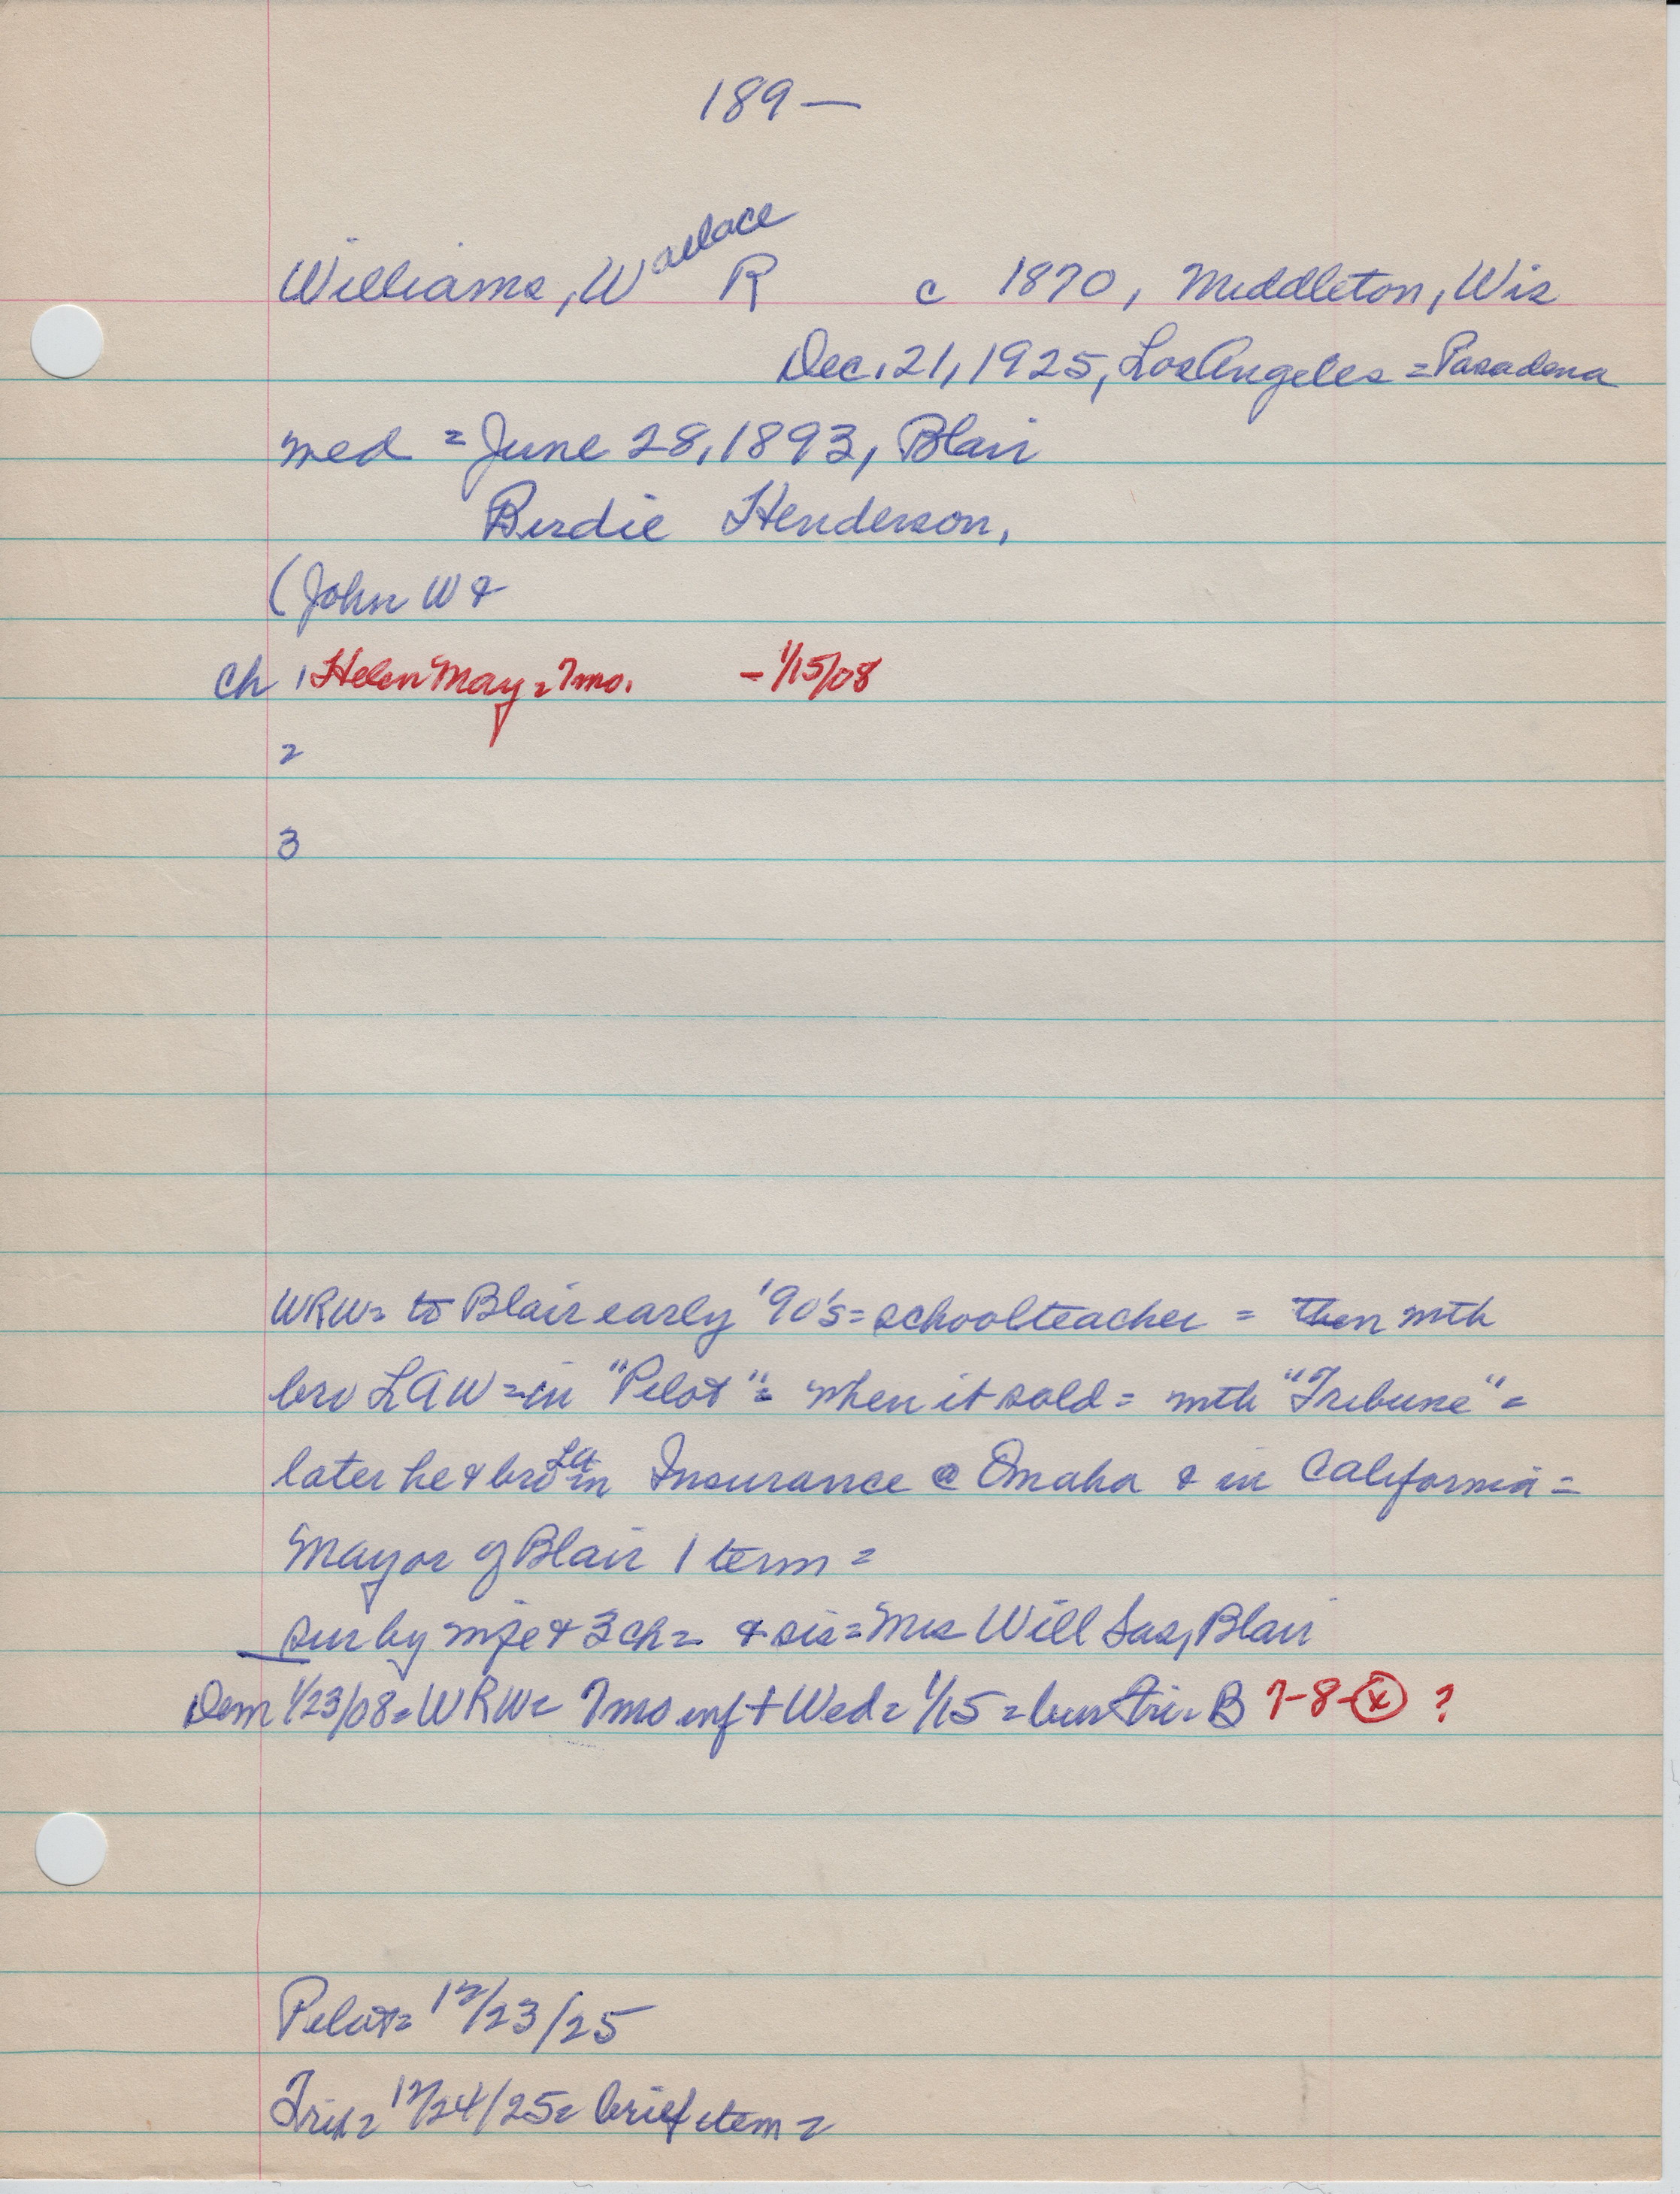 189—
Williams, Wallace R c 1870, Middleton, Wis
Dec. 21, 1925, Los Angeles = Pasadena
med = June 28, 1893, Blair
Birdie Henderson,
(John W &
Ch 1 Helen May = 7mo. - 1/15/08
2
3
WRW = to Blair early '90's = schoolteacher = then with
bro LAW = in "Pilot" = when it sold = with "Tribune" =
later he & bro LA in Insurance @ Omaha & in California =
Mayor of Blair 1 term =
sur by wife & 3 ch = & sis = Mrs Will Sas, Blair
Dem 1/23/08 = WRW = 7mo inf + Wed = 1/15 = bur Fri = B 7-8-(x) ?
Pilot = 12/23/25
Trib = 12/24/25 = brief item =